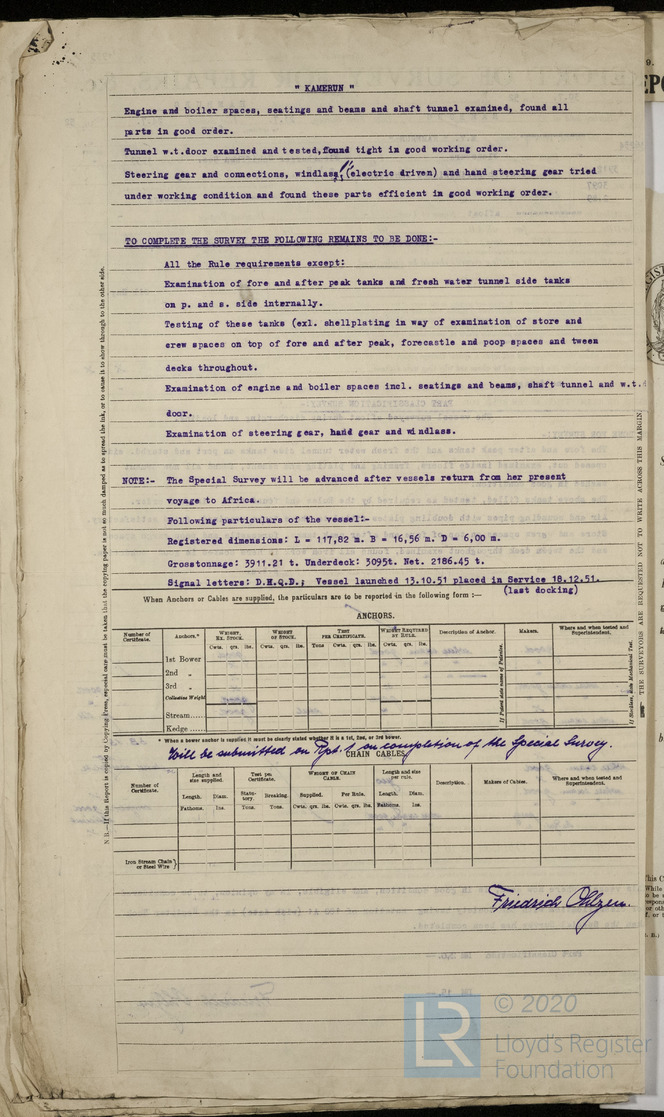 " KAMERUN "
Engine and boiler spaces, seatings and beams and shaft tunnel examined, found all
parts in good order.
Tunnel w.t.door examined and tested, found tight in good working order.
Steering gear and connections, windlass, (electric driven) and hand steering gear tried
under working condition and found these parts efficient in good working order.
TO COMPLETE THE SURVEY THE FOLLOWING REMAINS TO BE DONE:-
All the Rule requirements except:
Examination of fore and after peak tanks and fresh water tunnel side tanks
on p. and s. side internally.
Testing of these tanks (exl. shellplating in way of examination of store and
crew spaces on top of fore and after peak, forecastle and poop spaces and tween
decks throughout.
Examination of engine and boiler spaces incl. seatings and beams, shaft tunnel and w.t.
door.
Examination of steering gear, hand gear and windlass.
NOTE:- The Special Survey will be advanced after vessels return from her present
voyage to Africa.
Following particulars of the vessel:-
Registered dimensions: L = 117,82 m. B = 16,56 m. D = 6,00 m.
Grosstonnage: 3911.21 t. Underdeck: 3095t. Net. 2186.45 t.
Signal letters: D.H.Q.D.; Vessel launched 13.10.51 placed in Service 18.12.51.
(last docking)
When Anchors or Cables are supplied, the particulars are to be reported in the following form :—
ANCHORS.
Number of Certificate. Anchors.* WEIGHT, EX. STOCK. WEIGHT OF STOCK. TEST PER CERTIFICATE. WEIGHT REQUIRED BY RULE. Description of Anchor. Makers. Where and when tested and Superintendent.
Cwts. qrs. lbs. Cwts. qrs. lbs. Tons Cwts. qrs. lbs. Cwts. qrs. lbs.
1st Bower
2nd „
3rd „
Collective Weight
Stream.....
Kedge ..
If Patent state name of Patentee.
If Stockless, state Mechanical Test.
* When a bower anchor is supplied it must be clearly stated whether it is a 1st, 2nd, or 3rd bower.
Will be submitted on Rpt. 1 on completion of the Special Survey.
CHAIN CABLES.
Number of Certificate. Length and size supplied. Test per Certificate. WEIGHT OF CHAIN CABLE. Length and size per rule. Description. Makers of Cables. Where and when tested and Superintendent.
Length. Diam. Statutory. Breaking. Supplied. Per Rule. Length. Diam.
Fathoms. Ins. Tons. Tons. Cwts. qrs. lbs. Cwts. qrs. lbs. Fathoms. Ins.
Iron Stream Chain or Steel Wire
Friedrich Ohlzen.
N.B.—If this Report is copied by Copying Press, especial care must be taken that the copying paper is not so much damped as to spread the ink, or to cause it to show through to the other side.
THE SURVEYORS ARE REQUESTED NOT TO WRITE ACROSS THIS MARGIN
LR
© 2020
Lloyd's Register
Foundation